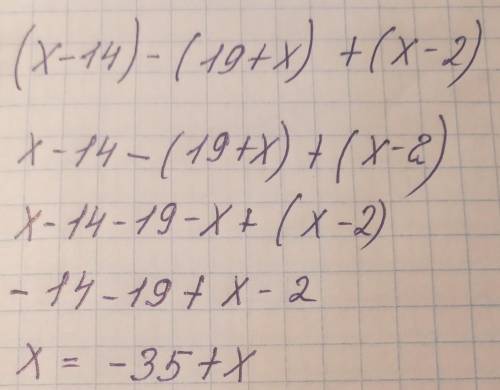 (x-14)-(19+x)+(x-2)
x-14-(19+x)+(x-2)
x-14-19-x+(x-2)
-14-19+x-2
x=-35+x